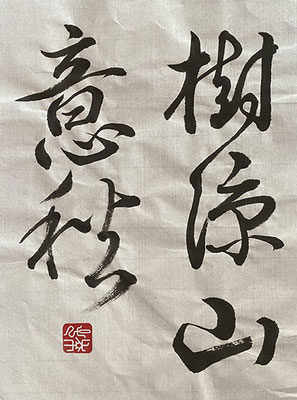 樹涼山
意秋